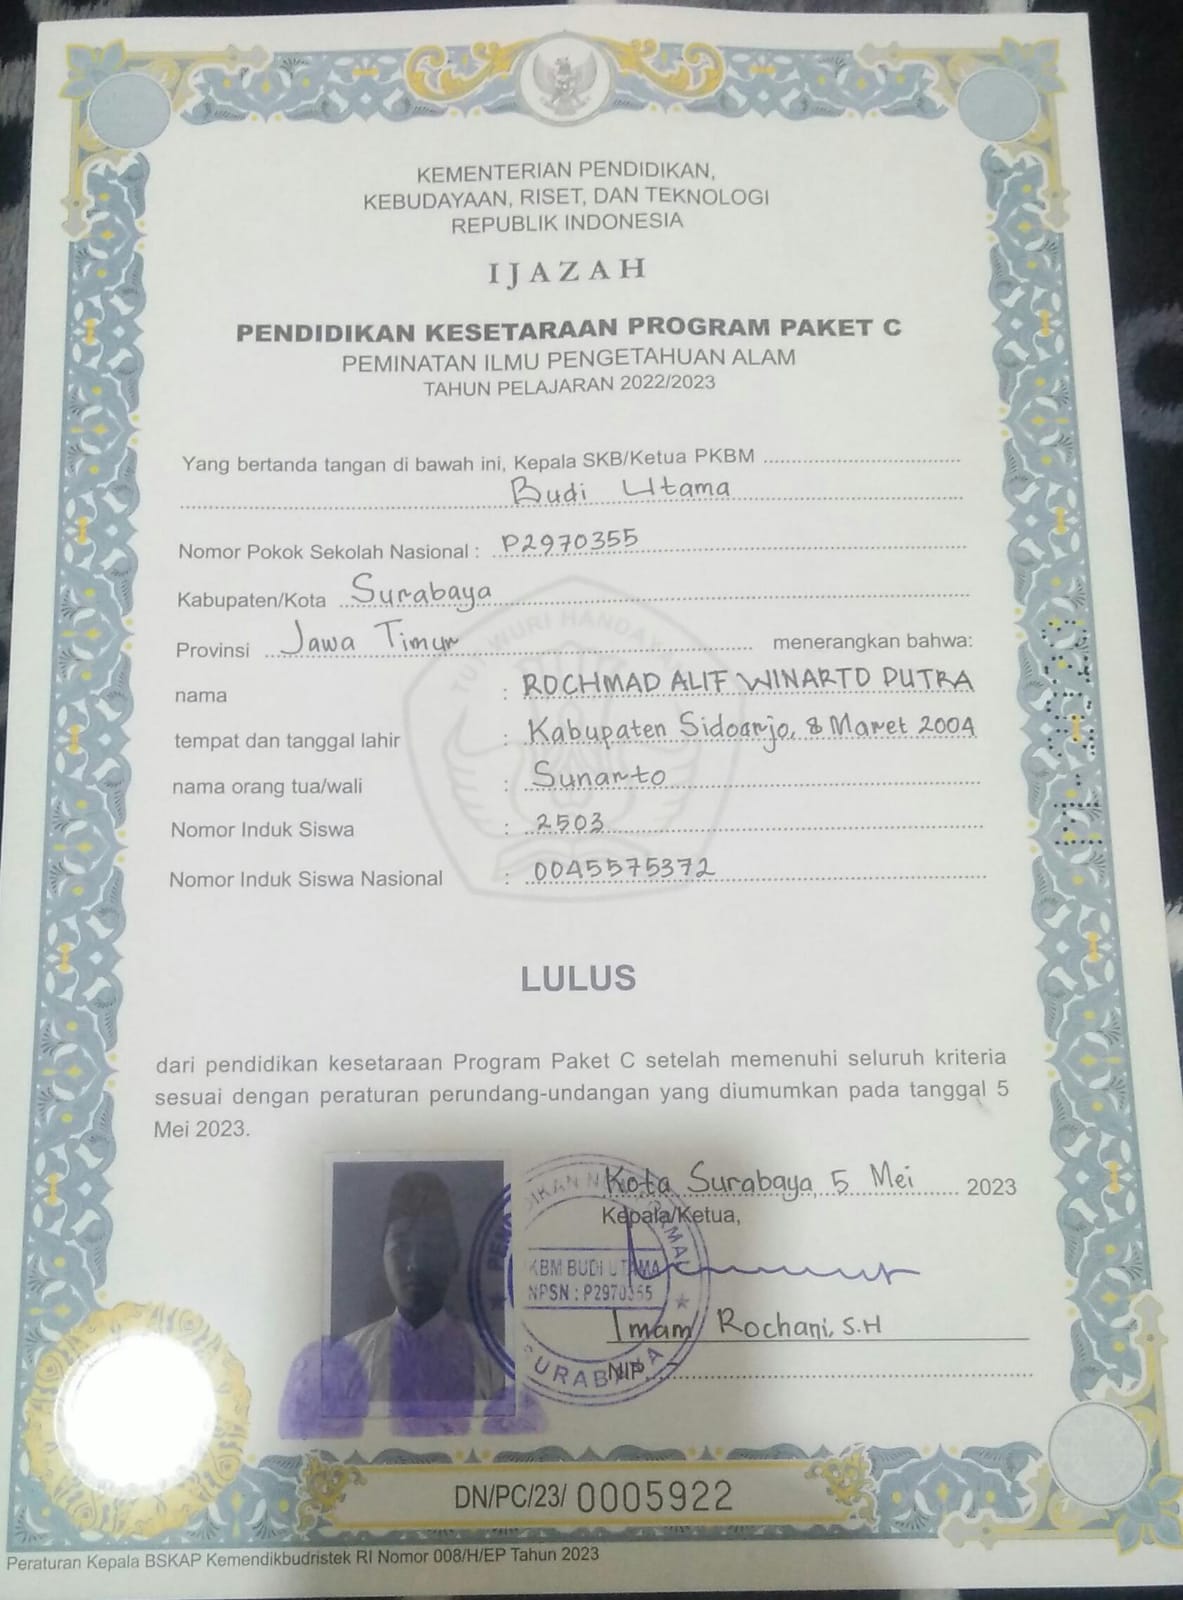 KEMENTERIAN PENDIDIKAN,
KEBUDAYAAN, RISET, DAN TEKNOLOGI
REPUBLIK INDONESIA
IJAZAH
PENDIDIKAN KESETARAAN PROGRAM PAKET C
PEMINATAN ILMU PENGETAHUAN ALAM
TAHUN PELAJARAN 2022/2023
Yang bertanda tangan di bawah ini, Kepala SKB/Ketua PKBM
Budi Utama
Nomor Pokok Sekolah Nasional : P2970355
Kabupaten/Kota Surabaya
Provinsi Jawa Timur menerangkan bahwa:
TUT WURI HANDAYANI
nama : ROCHMAD ALIF WINARTO PUTRA
tempat dan tanggal lahir : Kabupaten Sidoarjo, 8 Maret 2004
nama orang tua/wali : Sunarto
Nomor Induk Siswa : 2503
Nomor Induk Siswa Nasional : 0045575372
LULUS
dari pendidikan kesetaraan Program Paket C setelah memenuhi seluruh kriteria
sesuai dengan peraturan perundang-undangan yang diumumkan pada tanggal 5
Mei 2023.
Kota Surabaya, 5 Mei 2023
Kepala/Ketua,
KBM BUDI UTAMA
NPSN : P2970355
Imam Rochani, S.H
NIP.
SURABAYA
DN/PC/23/ 0005922
Peraturan Kepala BSKAP Kemendikbudristek RI Nomor 008/H/EP Tahun 2023